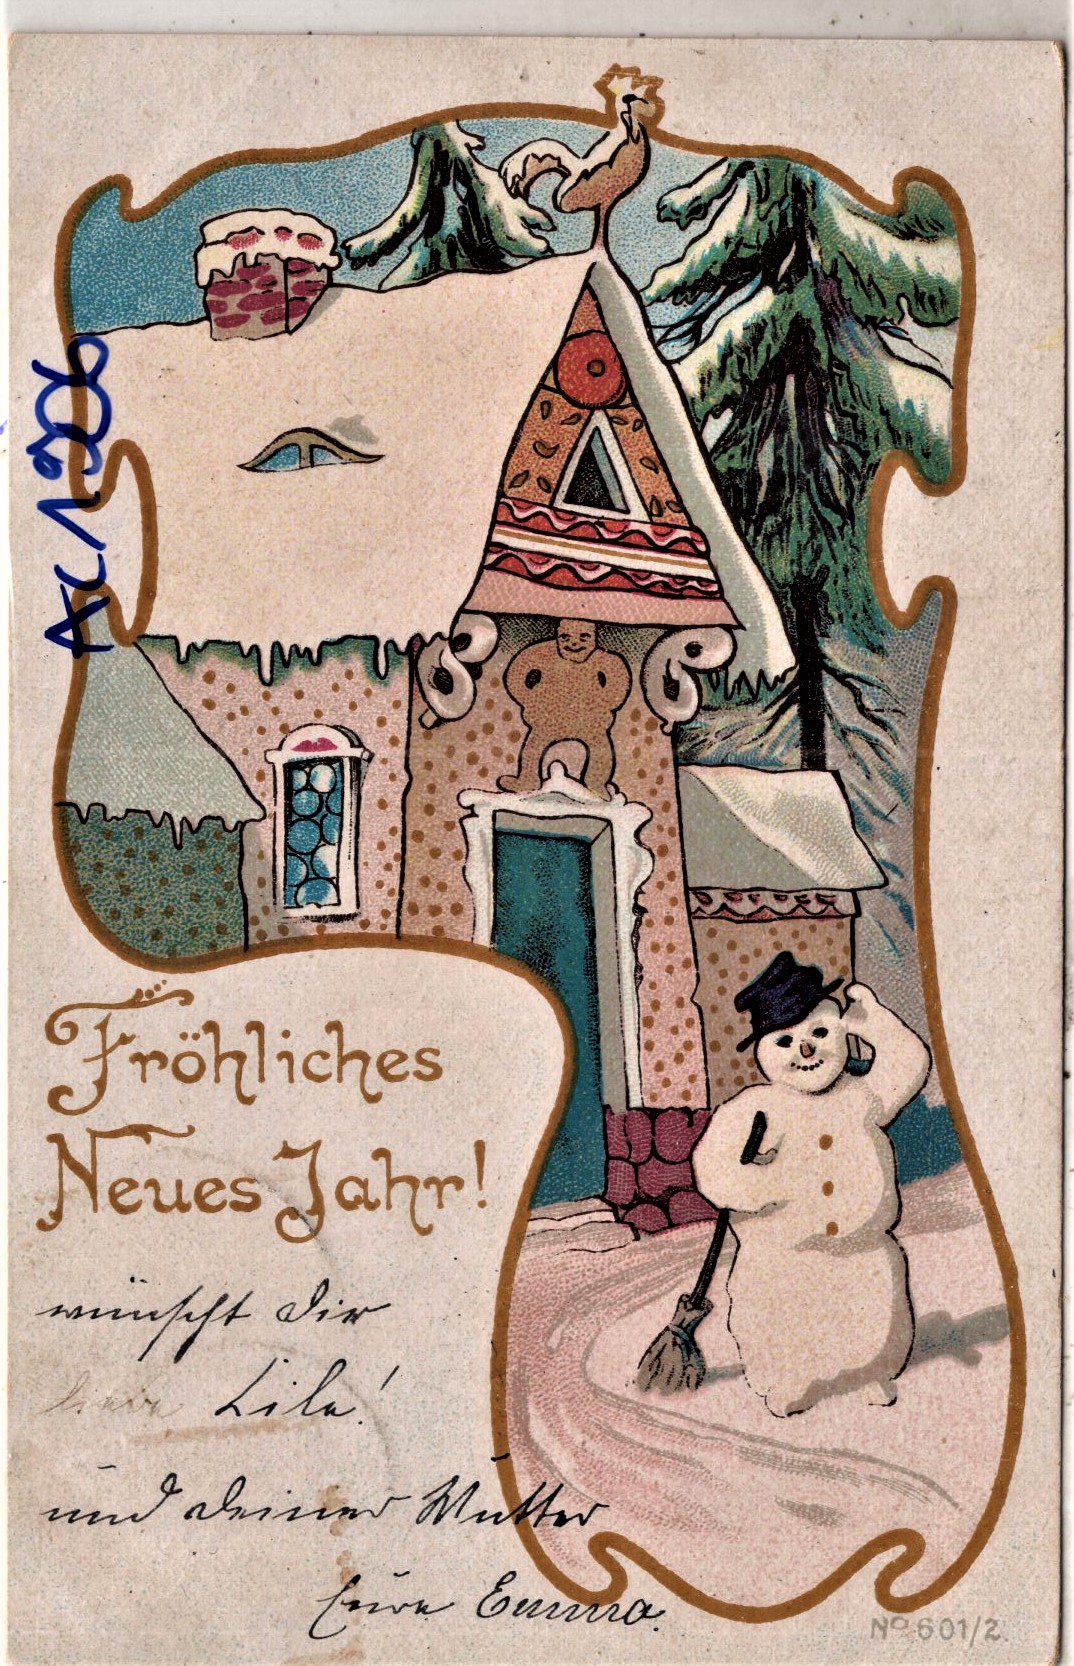 AK 1906
Fröhliches
Neues Jahr!
wünscht Dir
liebe Lila!
und deiner Mutter
Eure Emma.
No 601/2